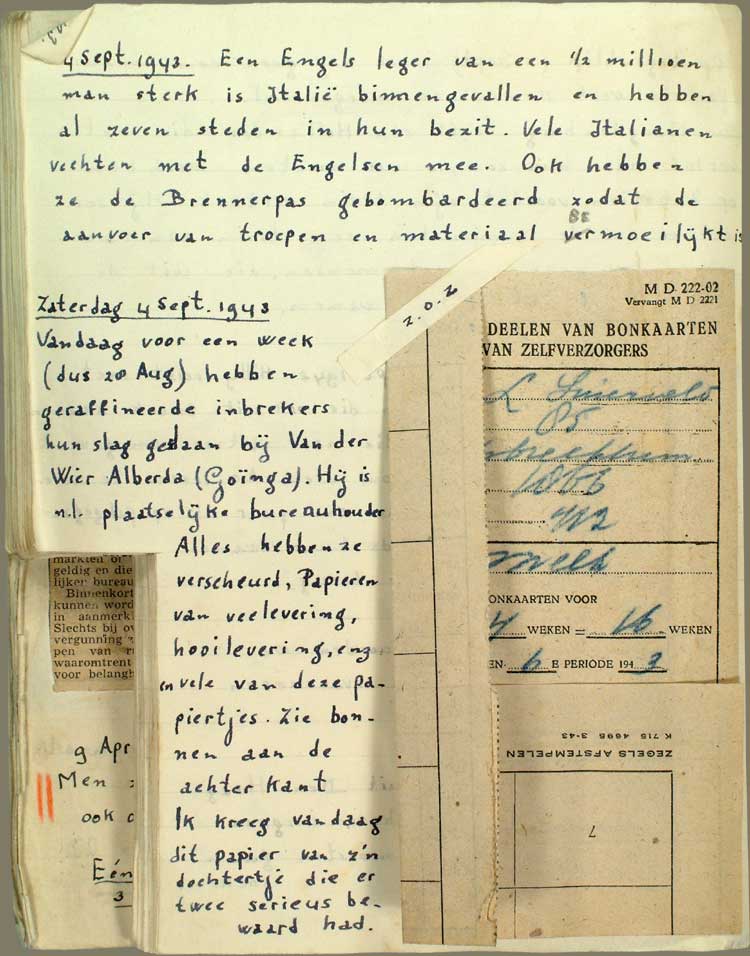 4 Sept. 1943. Een Engels leger van een 1/2 millioen
man sterk is Italië binnengevallen en hebben
al zeven steden in hun bezit. Vele Italianen
vechten met de Engelsen mee. Ook hebben
ze de Brennerpas gebombardeerd zodat de
aanvoer van troepen en materiaal vermoeilijkt is
BE
Zaterdag 4 Sept. 1943
Vandaag voor een week
(dus 28 Aug) hebben
geraffineerde inbrekers
hun slag gedaan bij Van der
Wier Alberda (Goïnga). Hij is
n.l. plaatselijke bureauhouder
Alles hebben ze
verscheurd, Papieren
van veelevering,
hooilevering, enz
en vele van deze pa-
piertjes. Zie bon-
nen aan de
achter kant
Ik kreeg vandaag
dit papier van z'n
dochtertje die er
twee serieus be-
waard had.
z.o.z
M D 222-02
Vervangt M D 2221
DEELEN VAN BONKAARTEN
VAN ZELFVERZORGERS
L
85
1055
412
melk
ONKAARTEN VOOR
4 WEKEN = 16 WEKEN
EN 6 E PERIODE 194 3
K 715 4695 3-43
ZEGELS AFSTEMPELEN
7
markten of
geldig en die
lijker bureau
Binnenkort
kunnen word
in aanmerk
Slechts bij ov
vergunning
pen van
waaromtrent
voor belangh
9 Apr
Men
ook
Eén
3